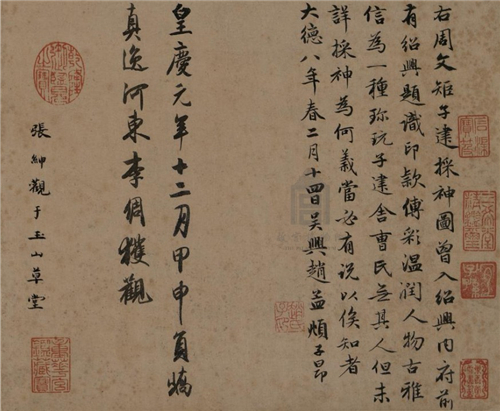 右周文矩子建採神圖曾入紹興内府前
有紹興題識印款傅彩温潤人物古雅
信為一種珎玩子建舍曹氏無其人但未
詳採神為何義當必有说以俟知者
大德八年春二月十四日吴興趙孟頫子昂
皇慶元年十二月甲申員嶠
真逸河東李倜獲觀
張紳觀于玉山草堂